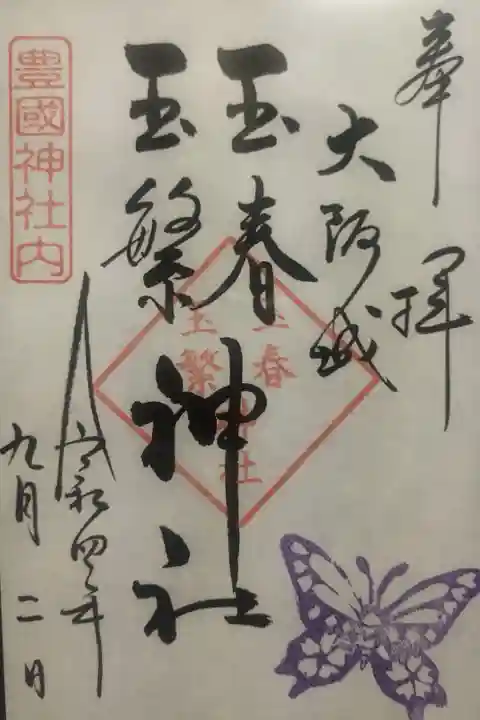 奉拝
大阪城
玉春
玉繁
神社
令和四年
九月二日
豊國神社内
玉春
玉繁
神社